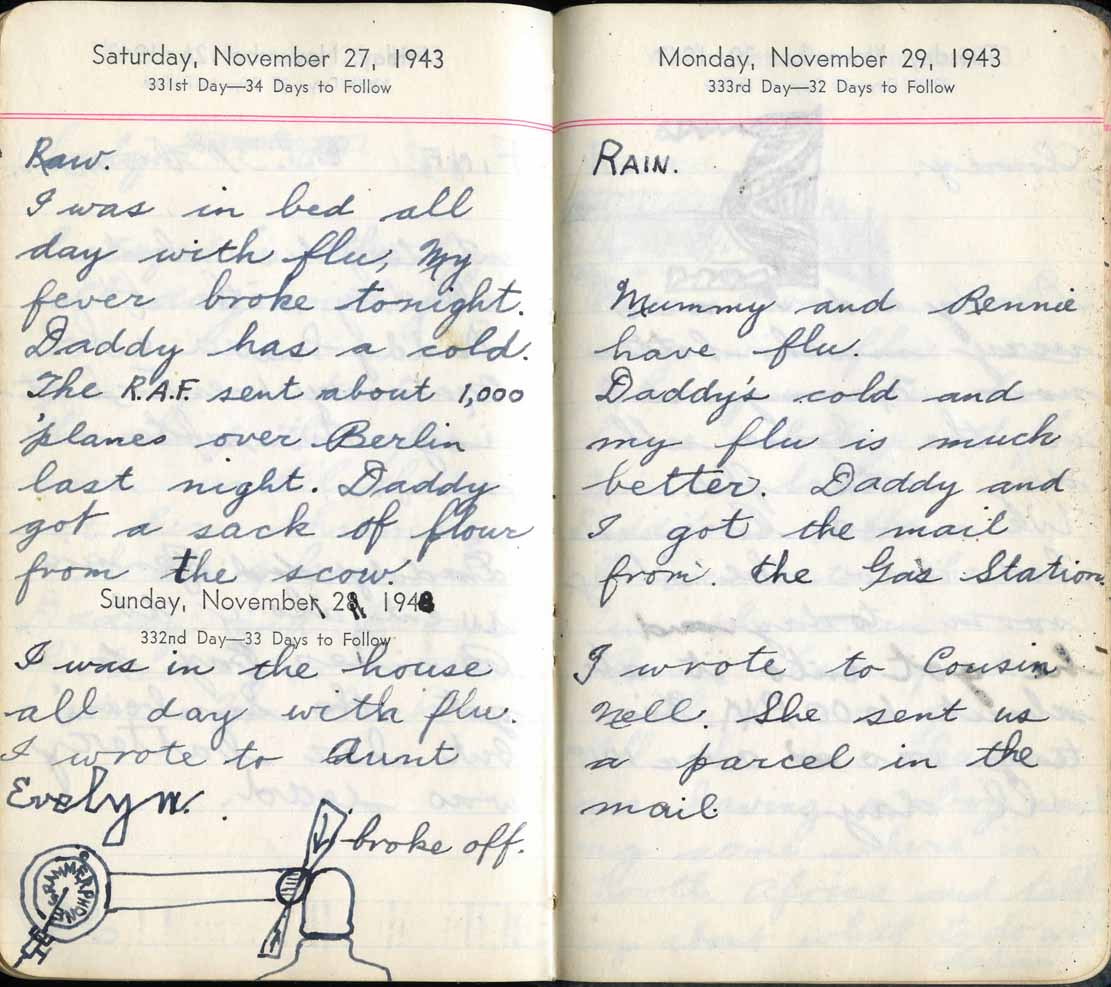 Saturday, November 27, 1943
331st Day—34 Days to Follow
Raw.
I was in bed all
day with flu, My
fever broke tonight.
Daddy has a cold.
The R.A.F. sent about 1,000
'planes over Berlin
last night. Daddy
got a sack of flour
from the scow.
Sunday, November 28, 1943
332nd Day—33 Days to Follow
I was in the house
all day with flu.
I wrote to Aunt
Evelyn.
broke off.
Monday, November 29, 1943
333rd Day—32 Days to Follow
RAIN.
Mummy and Rennie
have flu.
Daddy's cold and
my flu is much
better. Daddy and
I got the mail
from the Gas Station.
I wrote to Cousin
Nell. She sent us
a parcel in the
mail.